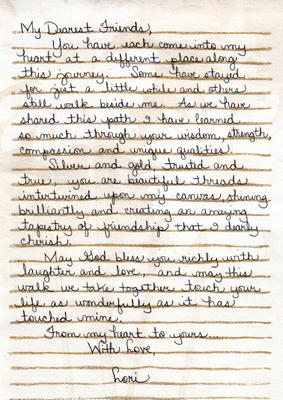 My Dearest Friends,
You have each come into my
heart at a different place along
this journey. Some have stayed
for just a little while and others
still walk beside me. As we have
shared this path I have learned
so much through your wisdom, strength,
compassion and unique qualities.
Silver and gold, trusted and
true, you are beautiful threads
intertwined upon my canvas, shining
brilliantly and creating an amazing
tapestry of friendship that I dearly
cherish.
May God bless you richly with
laughter and love, and may this
walk we take together touch your
life as wonderfully as it has
touched mine.
From my heart to yours...
With Love,
Lori